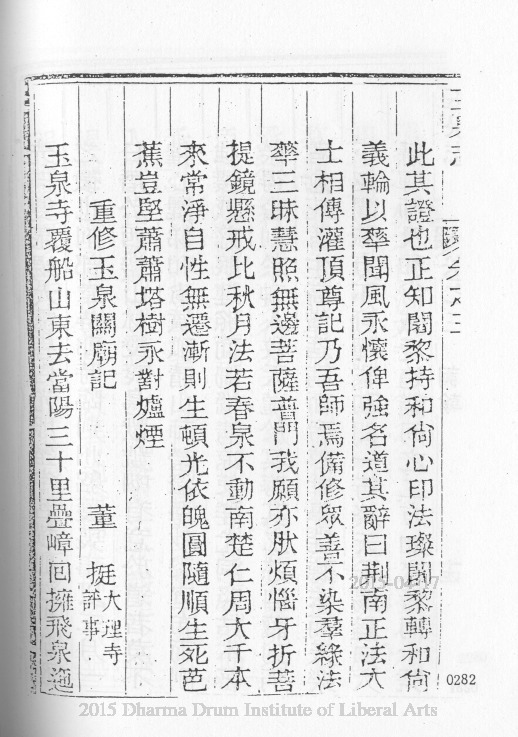 此其證也正知闍黎持和尙心印法璨闍黎轉和尙
義輪以犖聞風永懷俾強名道其辭曰荆南正法大
士相傳灌頂尊記乃吾師焉備修眾善不染羣緣法
犖三昧慧照無邊菩薩普門我願亦肰煩惱牙折菩
提鏡懸戒比秋月法若春泉不動南楚仁周大千本
來常淨自性無遷漸則生頓光依魄圓隨順生死芭
蕉豈堅蕭蕭塔樹永對爐煙
重修玉泉關廟記 董 挺大理寺評事
玉泉寺覆船山東去當陽三十里疊嶂回擁飛泉迤
0282
2015 Dharma Drum Institute of Liberal Arts